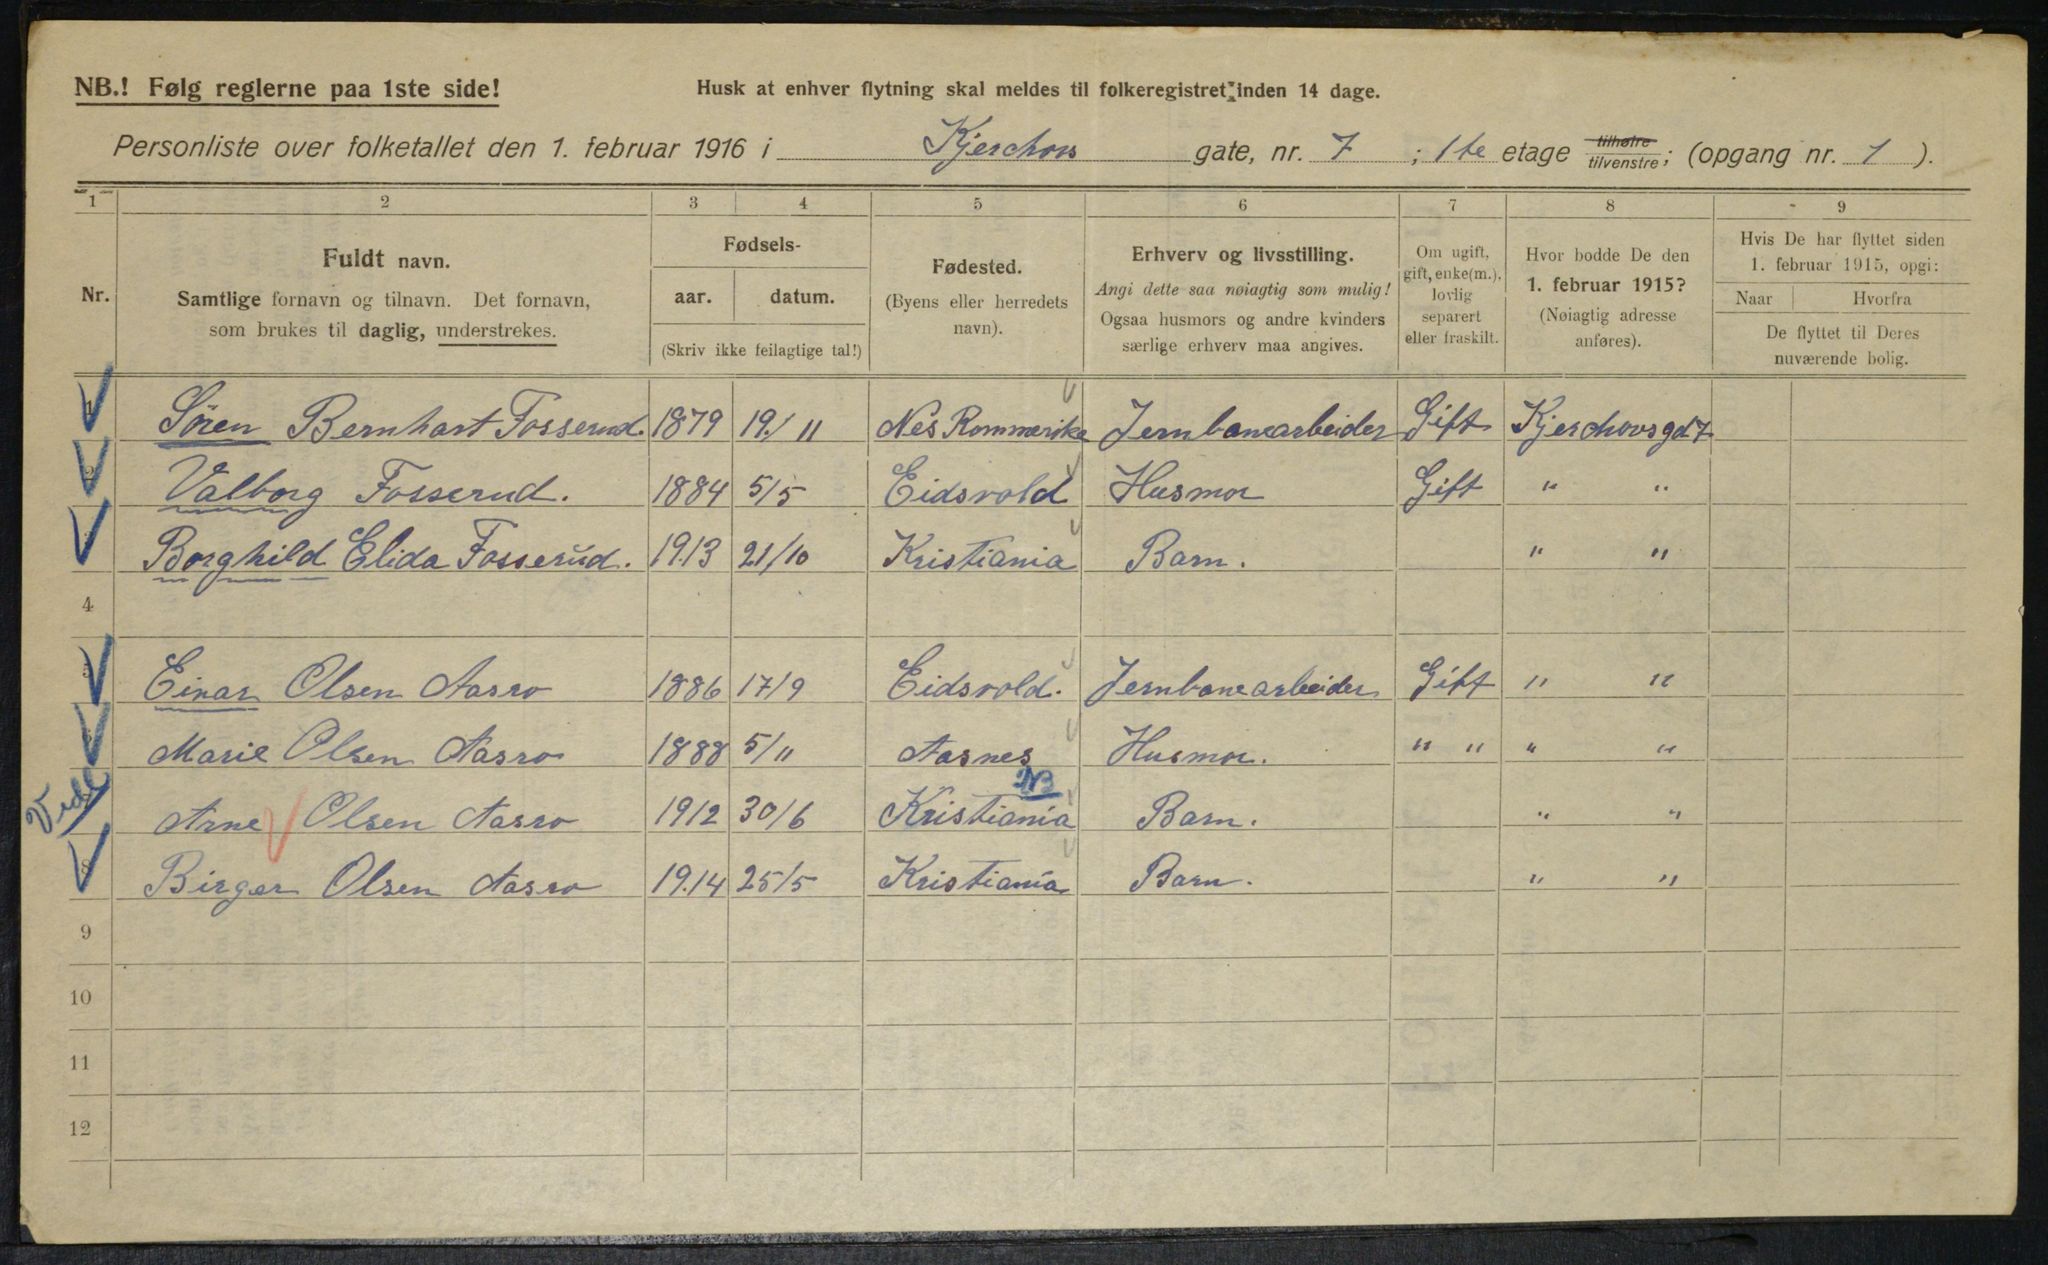 NB.! Følg reglerne paa 1ste side!
Husk at enhver flytning skal meldes til folkeregistret inden 14 dage.
Personliste over folketallet den 1. februar 1916 i Kjerchovs gate, nr. 7 ; 1te etage tilhøire tilvenstre; (opgang nr. 1 ).
1 2 3 4 5 6 7 8 9
Nr.
Fuldt navn.
Samtlige fornavn og tilnavn. Det fornavn,
som brukes til daglig, understrekes.
Fødsels-
aar. datum.
(Skriv ikke feilagtige tal!)
Fødested.
(Byens eller herredets
navn).
Erhverv og livsstilling.
Angi dette saa nøiagtig som mulig!
Ogsaa husmors og andre kvinders
særlige erhverv maa angives.
Om ugift,
gift, enke(m.),
lovlig
separert
eller fraskilt.
Hvor bodde De den
1. februar 1915?
(Nøiagtig adresse
anføres).
Hvis De har flyttet siden
1. februar 1915, opgi:
Naar Hvorfra
De flyttet til Deres
nuværende bolig.
1 Søren Bernhart Fosserud. 1879 19/11 Nes Rommerike Jernbanearbeider Gift Kjerchovsgd 7
2 Valborg Fosserud. 1884 5/5 Eidsvold Husmor Gift " "
3 Borghild Elida Fosserud. 1913 21/10 Kristiania Barn. " "
4
5 Einar Olsen Aasro 1886 17/9 Eidsvold. Jernbanearbeider Gift " "
6 Marie Olsen Aasro 1888 5/11 Aasnes Husmor. " " " "
NB
Vide Arne Olsen Aasro 1912 30/6 Kristiania Barn. " "
8 Birger Olsen Aasro 1914 25/5 Kristiania Barn. " "
9
10
11
12